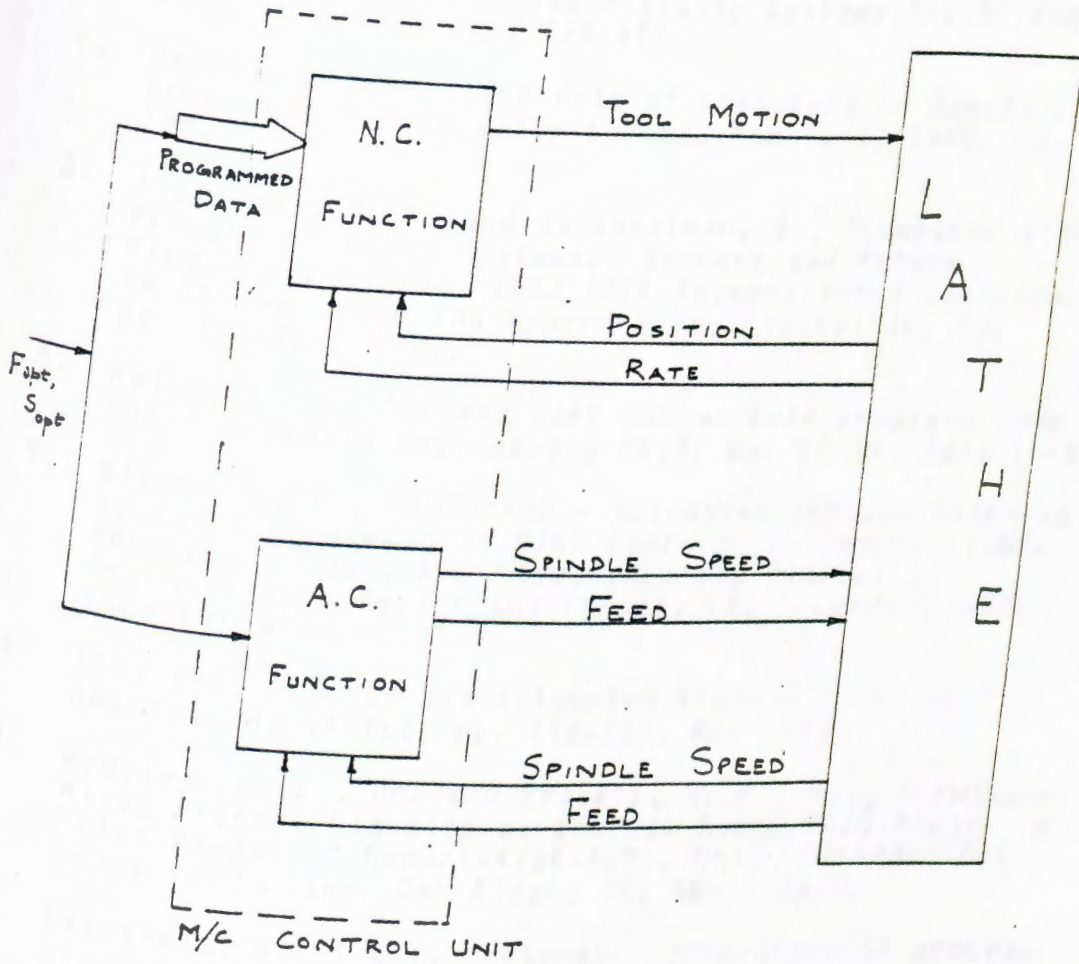 N.C.
FUNCTION
PROGRAMMED
DATA
TOOL MOTION
POSITION
RATE
Fopt,
Sopt
A.C.
FUNCTION
SPINDLE SPEED
FEED
SPINDLE SPEED
FEED
LATHE
M/C CONTROL UNIT